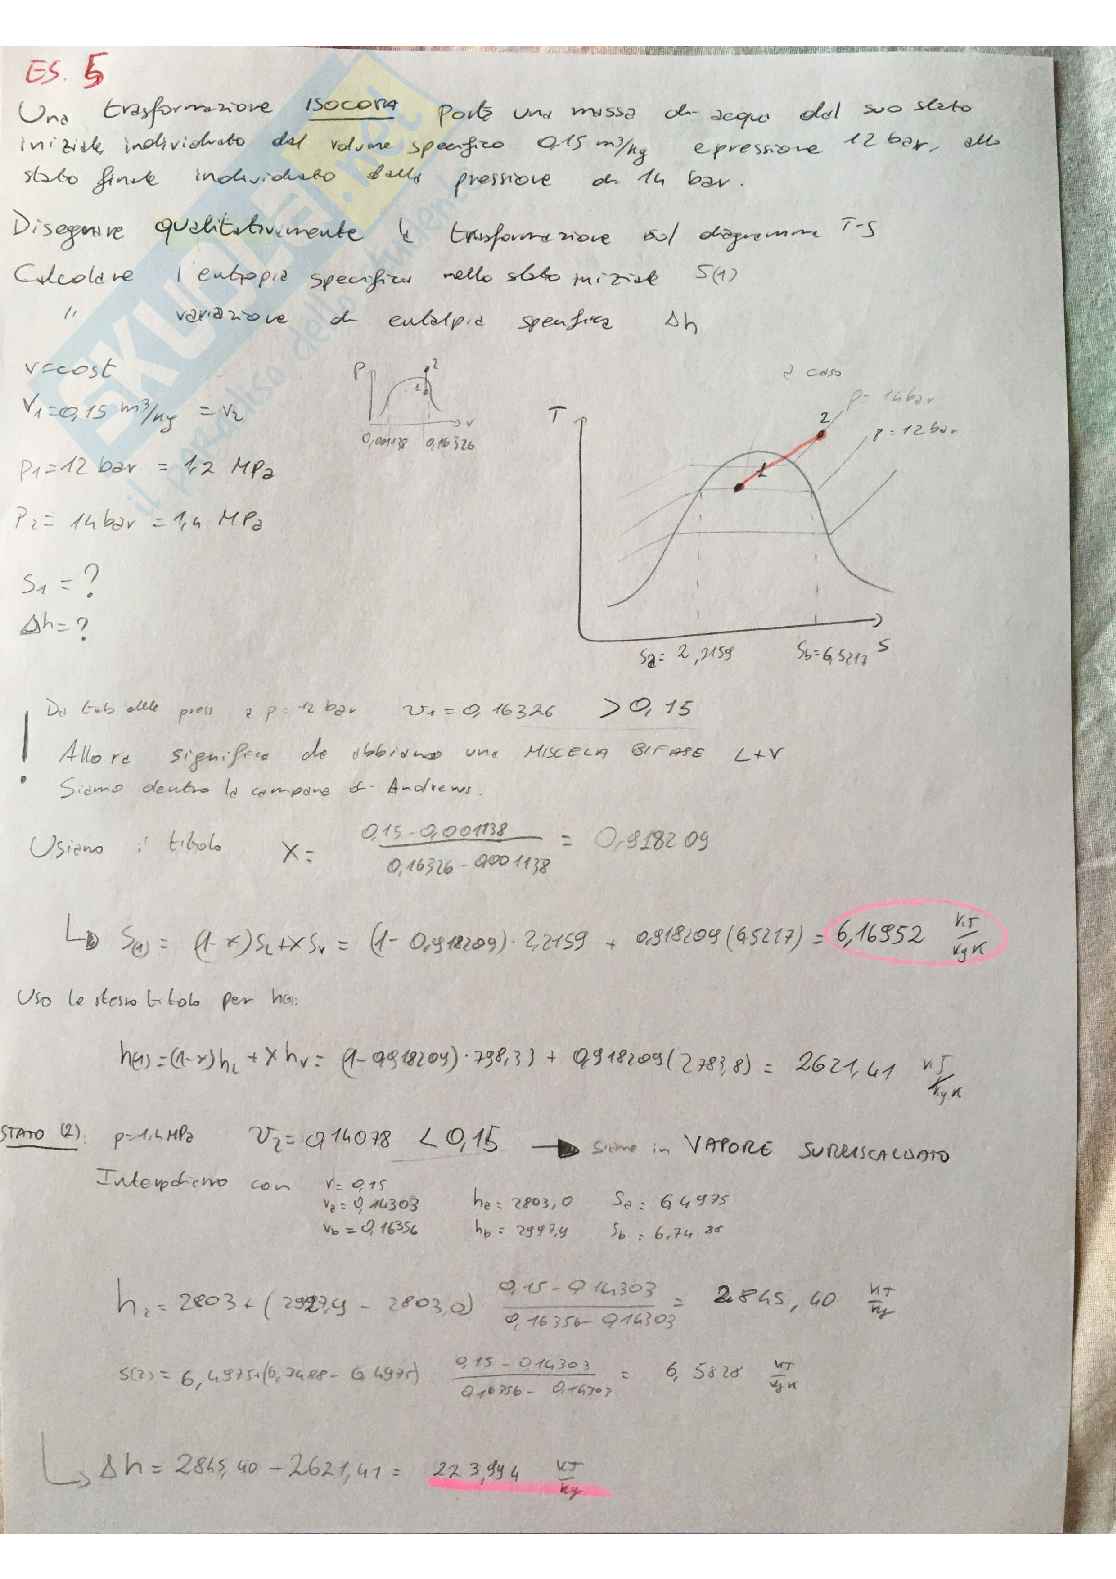 ES. 5
Una trasformazione ISOCORA porta una massa di acqua dal suo stato
iniziale individuato dal volume specifico 0,15 m³/kg e pressione 12 bar, allo
stato finale individuato dalla pressione di 14 bar.
Disegnare qualitativamente la trasformazione sul diagramma T-S
Calcolare l'entropia specifica nello stato iniziale S(1)
" variazione di entalpia specifica Δh
v=cost
V1=0,15 m³/kg = V2
P1=12 bar = 1,2 MPa
P2= 14 bar = 1,4 MPa
S1 = ?
Δh= ?
P
2
1
v
0,001138 0,16326
2 caso
T
p= 14bar
p= 12 bar
2
1
Sa= 2,2159 Sb=6,5217 S
Da tab delle press a p= 12 bar v1=0,16326 >0,15
! Allora significa che abbiamo una MISCELA BIFASE L+V
Siamo dentro la campana di Andrews.
Usiamo il titolo X= 0,15-0,001138 / 0,16326-0,001138 = 0,918209
S(1)= (1-x)SL+xSv = (1-0,918209)·2,2159 + 0,918209(6,5217) = 6,16952 kJ/kgK
Uso lo stesso titolo per h(1):
h(1)=(1-x)hL + x hv= (1-0,918209)·798,33 + 0,918209(2783,8) = 2621,41 kJ/kgK
STATO (2): p=1,4MPa v2=0,14078 <0,15 → Siamo in VAPORE SURRISCALDATO
Interpoliamo con v= 0,15
va=0,14303 ha= 2803,0 Sa= 6,4975
vb=0,16356 hb= 2927,9 Sb= 6,7488
h2= 2803+(2927,9 - 2803,0) 0,15-0,14303 / 0,16356-0,14303 = 2845,40 kJ/kg
S(2)= 6,4975+(6,7488-6,4975) 0,15-0,14303 / 0,16356-0,14303 = 6,5828 kJ/kgK
Δh= 2845,40-2621,41= 223,994 kJ/kg
SKUOLA.net
il paradiso dello studente